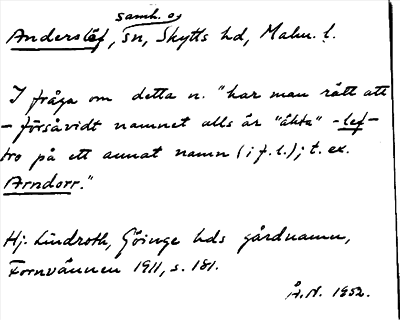 samh. o.
Anderslöf, sn, Skytts hd, Malm. l.
I fråga om detta n. "har man rätt att
– försåvidt namnet alls är "äkta" – lef –
tro på ett annat namn (i f. l.); t. ex.
Arndorr."
Hj. Lindroth, Göinge hds gårdnamn,
Fornvännen 1911, s. 181.
Å.N. 1952.